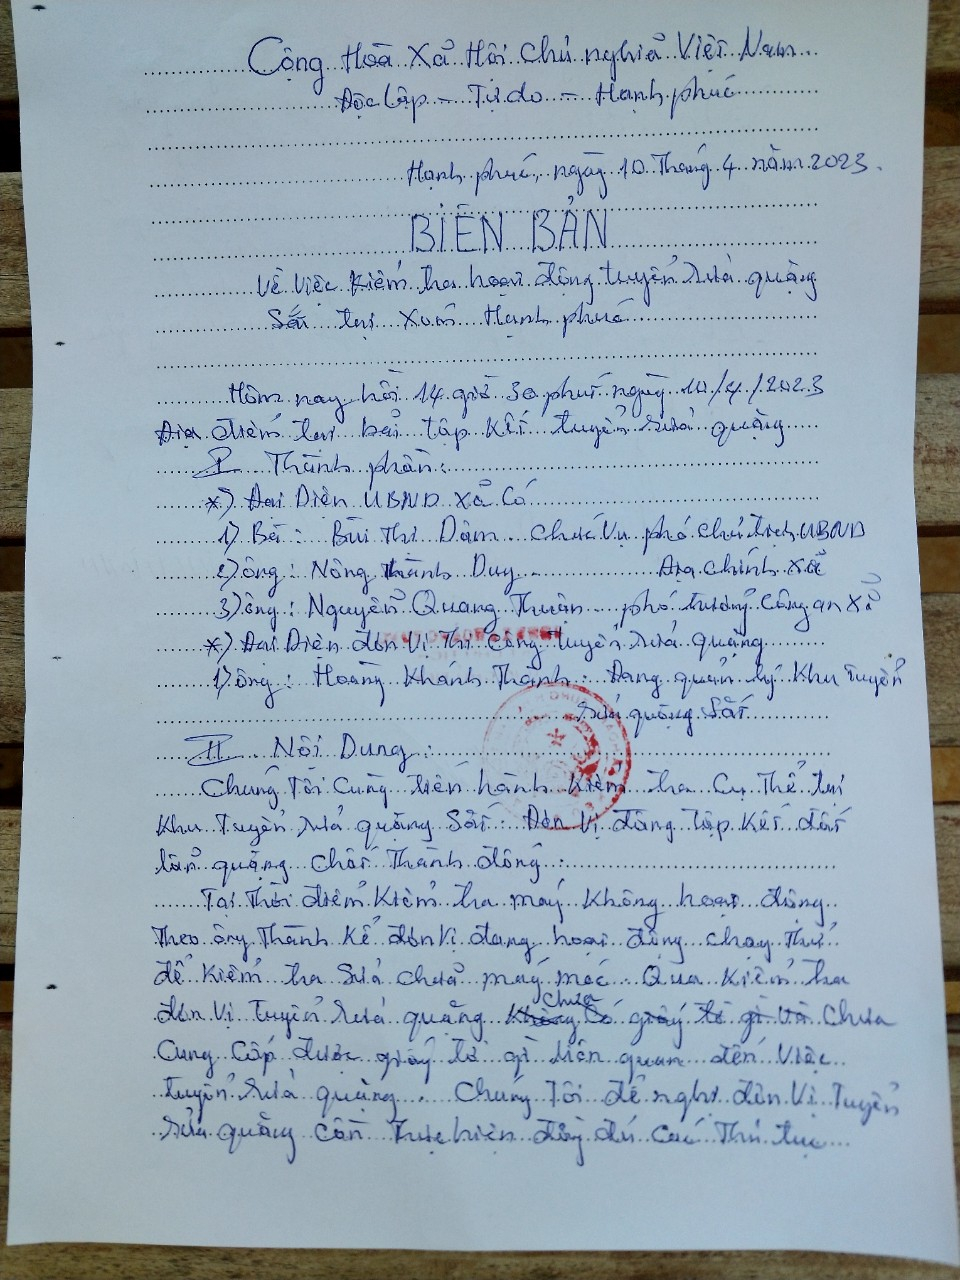 Cộng Hoà Xã Hội Chủ nghĩa Việt Nam
Độc lập - Tự do - Hạnh phúc
Hạnh phúc, ngày 10 Tháng 4 năm 2023.
BIÊN BẢN
Về việc kiểm tra hoạt động tuyển rửa quặng
Sắt tại Xóm Hạnh phúc
Hôm nay hồi 14 giờ 30 phút ngày 10/4/2023
Địa điểm tại bãi tập kết tuyển rửa quặng
I Thành phần:
*) Đại Diện UBND xã Có
1) Bà: Bùi Thị Dâm chức vụ phó chủ tịch UBND
2) ông: Nông Thành Duy Địa chính xã
3) ông: Nguyễn Quang Thuận phó trưởng Công an xã
*) Đại Diện đơn vị Thi công tuyển rửa quặng
1) ông: Hoàng Khánh Thành: Đang quản lý khu tuyển
rửa quặng sắt
II Nội Dung:
Chúng Tôi Cùng tiến hành kiểm tra Cụ Thể tại
khu Tuyển rửa quặng Sắt: Đơn vị đang tập kết đất
lẫn quặng chất Thành đống:
Tại Thời điểm kiểm tra máy không hoạt động
Theo ông Thành kể đơn vị đang hoạt động chạy Thử
để kiểm tra Sửa chữa máy móc. Qua kiểm tra
chưa
đơn vị tuyển rửa quặng không có giấy tờ gì và chưa
Cung Cấp được giấy tờ gì liên quan đến việc
tuyển rửa quặng. Chúng Tôi đề nghị đơn vị Tuyển
rửa quặng cần Thực hiện đầy đủ các Thủ tục